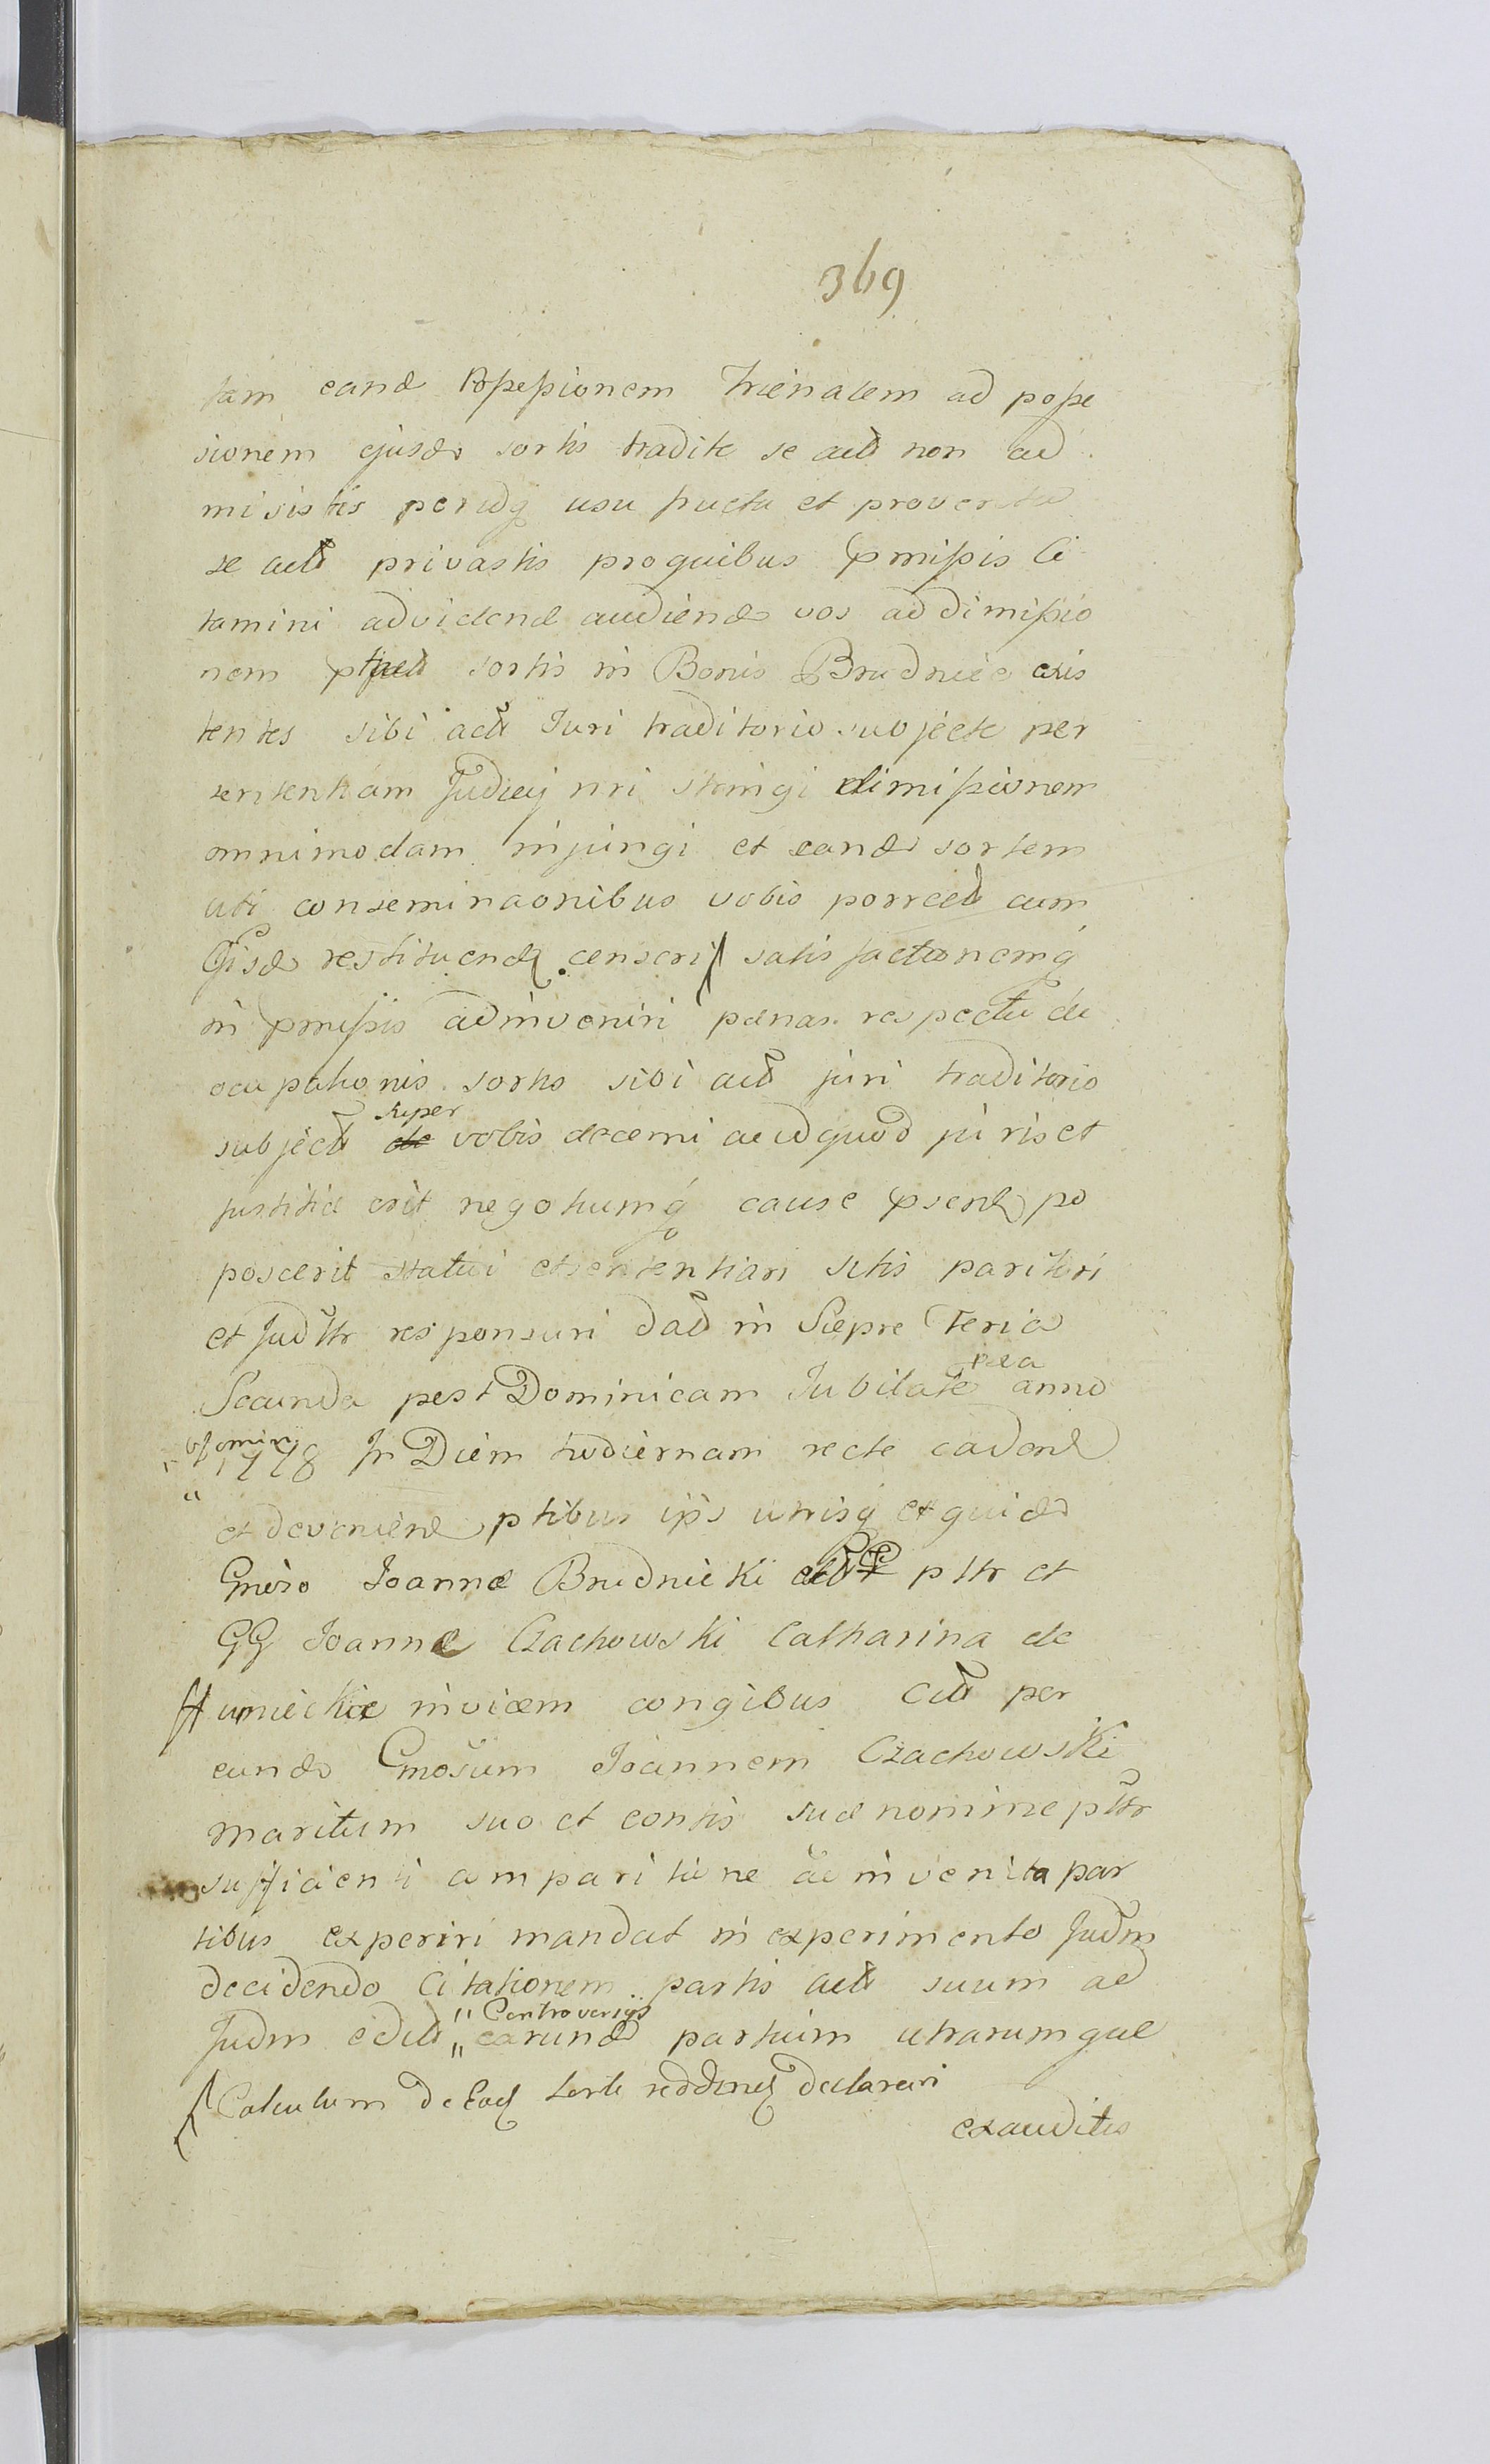 369
tam eand Possessionem Trienalem ad posse
sionem ejusd sortis tradite se actt non ad
misistis peridq usu fructu et proventu
se actt privastis proquibus pmissis Ci
tamini advidend audiend vos ad dimissio
nem sortis in Bonis Brudnice exis
tentes sibi actt Juri traditorio subjecte per
sententiam Judicij nri stringi dimissionem
omnimodam injungi et eand sortem
uti conseminaonibus vobis porrect cum
Gisd restituend censeri satisfactionemq
in pmissis adinveniri pænas respectu de
ocupationis sortis sibi actt juri traditorio
subject super vobis decerni aliudquod juris et
justitiæ erit negotiumq cause psend po
poscerit statui et sententiari sitis parituri
et Juddttr responsuri datt in Siepre Feria
Secunda post Dominicam Jubilate pca anno
omin 1778 In Diem hodiernam recte cadend
et deveniend ptibus ips utrisq et quid
Gneroso Joanne Brudnicki pttr et
GG Joanne Czachowski Catharina de
Humieckie invicem congibus Citt per
eund Gnosum Joannem Czachowski
maritum suo et contis suæ nomine pttr
sufficienti comparitione adinventa par
tibus experiri mandat in experimento Judm
decidendo Citationem partis actt suum ad
Judm edit " Controversijs
" earund partium utrarumque
Calculum de Ead sorte reddend declarari
exauditis